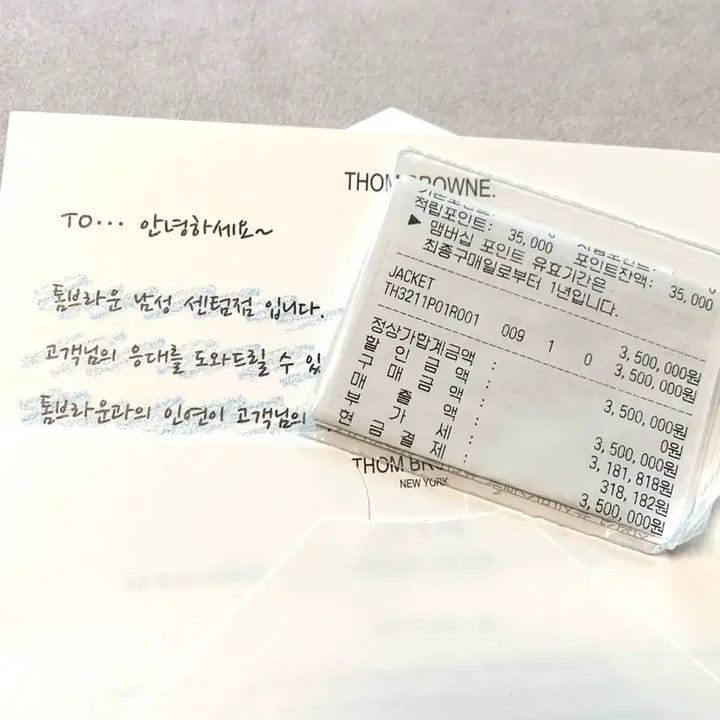 THOM BROWNE.
TO... 안녕하세요~
톰브라운 남성 센텀점 입니다.
고객님의 응대를 도와드릴 수 있
톰브라운과의 인연이 고객님의
적립포인트: 35,000 포인트잔액: 35,000
▶ 맴버십 포인트 유효기간은
최종구매일로부터 1년입니다.
JACKET
TH3211P01R001 009 1 0 3,500,000원
정상가합계금액 : 3,500,000원
할인금액 : 0원
구매금액 : 3,500,000원
매출액 : 3,181,818원
부가세 : 318,182원
현금결제 : 3,500,000원
THOM BRO
NEW YORK